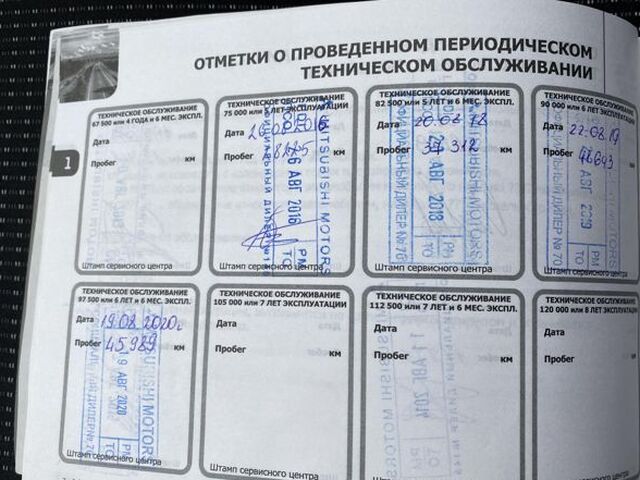 ОТМЕТКИ О ПРОВЕДЕННОМ ПЕРИОДИЧЕСКОМ
ТЕХНИЧЕСКОМ ОБСЛУЖИВАНИИ
1
ТЕХНИЧЕСКОЕ ОБСЛУЖИВАНИЕ
67 500 или 4 ГОДА и 6 МЕС. ЭКСПЛ.
Дата
Пробег км
Штамп сервисного центра
ТЕХНИЧЕСКОЕ ОБСЛУЖИВАНИЕ
75 000 или 5 ЛЕТ ЭКСПЛУАТАЦИИ
Дата
Пробег
MITSUBISHI MOTORS
26 АВГ 2016
PM
ТО
Штамп сервисного центра
ТЕХНИЧЕСКОЕ ОБСЛУЖИВАНИЕ
82 500 или 5 ЛЕТ и 6 МЕС. ЭКСПЛ.
Дата 20.08.18
Пробег 37 312 км
MOTORS
АВГ 2018
PM
ТО
ОФИЦИАЛЬНЫЙ ДИЛЕР №70
Штамп сервисного центра
ТЕХНИЧЕСКОЕ ОБСЛУЖИВАНИЕ
90 000 или 6 ЛЕТ ЭКСПЛУАТАЦИИ
Дата 22.08.19
Пробег
MOTORS
АВГ 2019
PM
ТО
ДИЛЕР № 70
Штамп сервисного центра
ТЕХНИЧЕСКОЕ ОБСЛУЖИВАНИЕ
97 500 или 6 ЛЕТ и 6 МЕС. ЭКСПЛ.
Дата 19.08.2020г
Пробег 45989 км
MITSUBISHI MOTORS
19 АВГ 2020
PM
ТО
Штамп сервисного центра
ТЕХНИЧЕСКОЕ ОБСЛУЖИВАНИЕ
105 000 или 7 ЛЕТ ЭКСПЛУАТАЦИИ
Дата
Пробег км
Штамп сервисного центра
ТЕХНИЧЕСКОЕ ОБСЛУЖИВАНИЕ
112 500 или 7 ЛЕТ и 6 МЕС. ЭКСПЛ.
Дата
Пробег км
Штамп сервисного центра
ТЕХНИЧЕСКОЕ ОБСЛУЖИВАНИЕ
120 000 или 8 ЛЕТ ЭКСПЛУАТАЦИИ
Дата
Пробег
Штамп сервисного центра